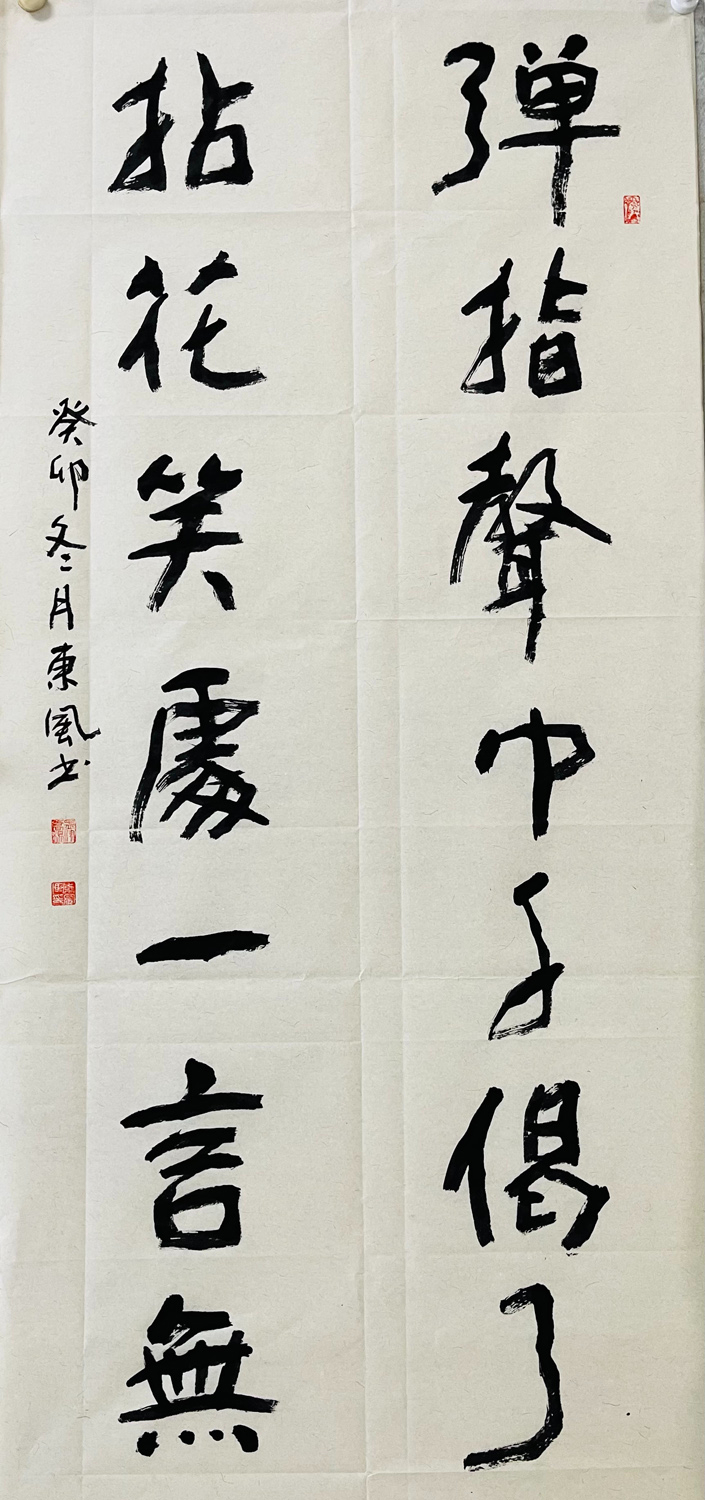 弹指聲巾千偈了
拈花笑處一言無
癸卯冬月東風书